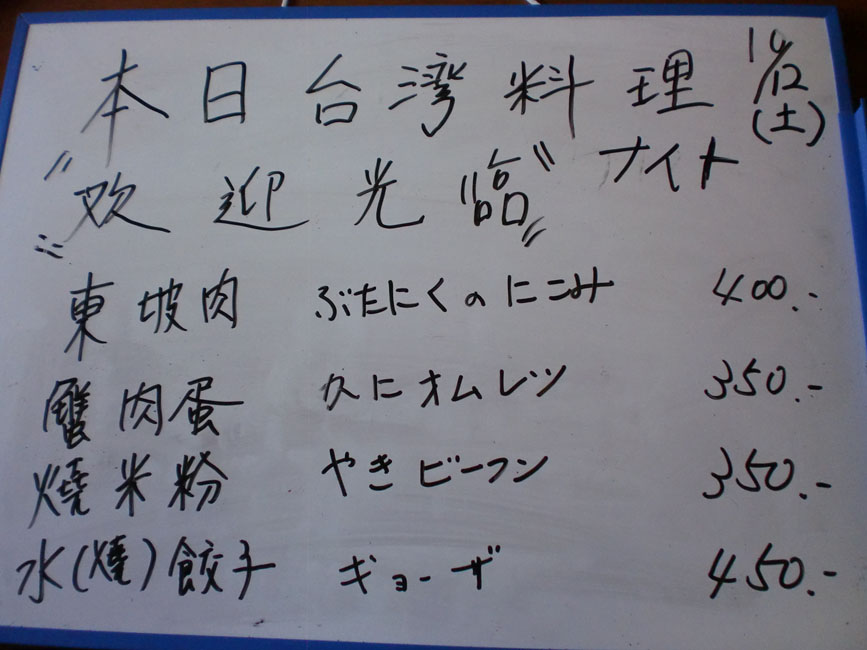 本日台湾料理 10/12(土)
"欢迎光臨" ナイト
東坡肉 ぶたにくのにこみ 400.-
蟹肉蛋 かにオムレツ 350.-
燒米粉 やきビーフン 350.-
水(燒)餃子 ギョーザ 450.-